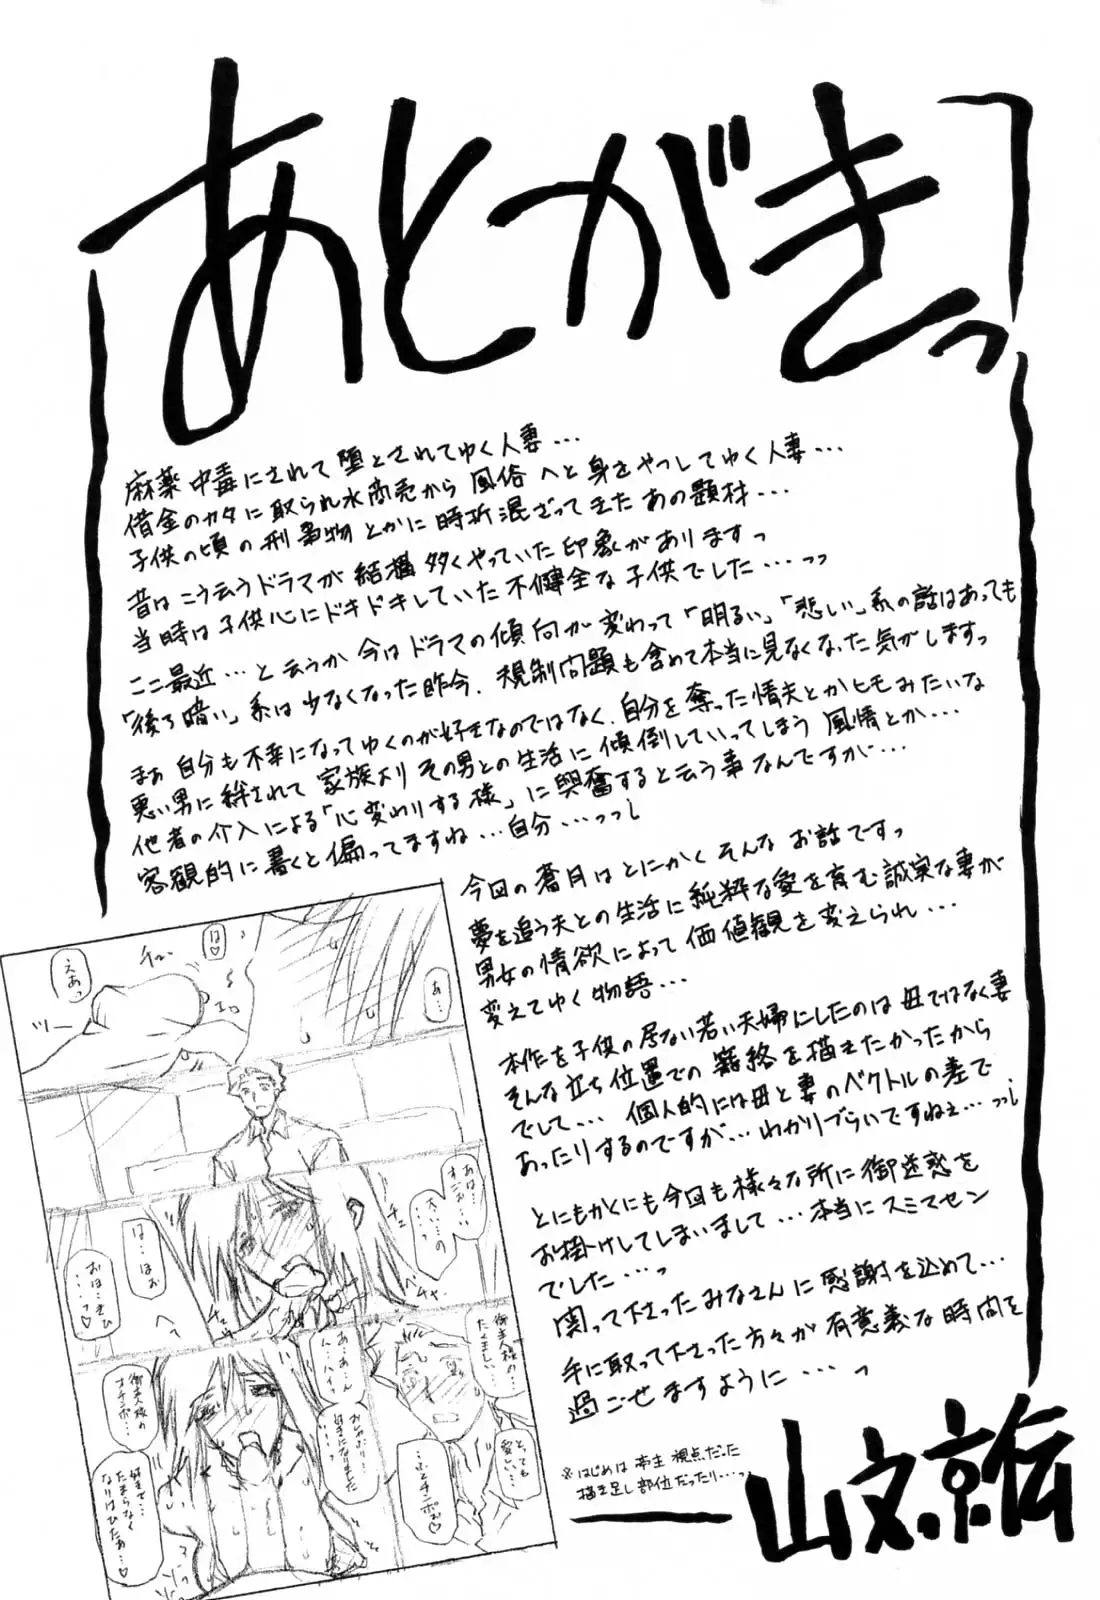 あとがきっ
麻薬中毒にされて堕とされてゆく人妻…
借金のカタに取られ水商売から風俗へと身をやつしてゆく人妻…
子供の頃の刑事物とかに時折混ざってきたあの題材…
昔はこう云うドラマが結構多くやっていた印象がありますっ
当時は子供心にドキドキしていた不健全な子供でした…っっ
ここ最近…と云うか今はドラマの傾向が変わって「明るい」「悲しい」系の話はあっても
「後ろ暗い」系は少なくなった昨今、規制問題も含めて本当に見なくなった気がしますっ
まぁ自分も不幸になってゆくのが好きなのではなく、自分を奪った情夫とかヒモみたいな
悪い男に絆されて家族よりその男との生活に傾倒していってしまう風情とか…
他者の介入による「心変わりする様」に興奮すると云う事なんですが…
客観的に書くと偏ってますね…自分…っっ
今回の蒼月はとにかくそんなお話ですっ
夢を追う夫との生活に純粋な愛を育む誠実な妻が
男女の情欲によって価値観を変えられ…
変えてゆく物語…
本作を子供の居ない若い夫婦にしたのは母ではなく妻
そんな立ち位置での籠絡を描きたかったから
でして… 個人的には母と妻のベクトルの差で
あったりするのですが…わかりづらいですねぇ…っっ
とにもかくにも今回も様々な所に御迷惑を
お掛けしてしまいまして…本当にスミマセン
でした…っ
関って下さったみなさんに感謝を込めて…
手に取って下さった方々が有意義な時間を
過ごせますように…っ
※はじめは 視点だった
描き足し部位だったり…っ
山文京伝